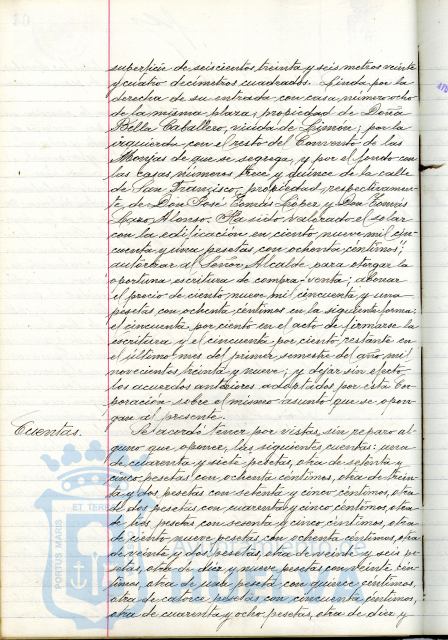 superficie de seiscientos treinta y seis metros veinte
y cuatro decímetros cuadrados. Linda por la
derecha de su entrada con casa número ocho
de la misma plaza, propiedad de Doña
Bella Caballero, viuda de Limon; por la
izquierda con el resto del Convento de las
Monjas de que se segrega, y por el fondo con
las casas números trece y quince de la calle
de San Francisco, propiedad, respectivamen-
te, de Don José Tomás López y Don Tomás
Haro Alonso. Ha sido valorado el solar
con la edificación en ciento nueve mil cin-
cuenta y una pesetas, con ochenta céntimos";
autorizar al Señor Alcalde para otorgar la
oportuna escritura de compra-venta; abonar
el precio de ciento nueve mil cincuenta y una
pesetas con ochenta céntimos en la siguiente forma:
el cincuenta por ciento en el acto de firmarse la
escritura y el cincuenta por ciento restante en
el último mes del primer semestre del año mil
novecientos treinta y nueve; y dejar sin efecto
los acuerdos anteriores adoptados por esta Cor-
poración sobre el mismo asunto que se opon-
gan al presente.
Cuentas. Se acordó tener por vistas, sin reparo al-
guno que oponer, las siguientes cuentas: una
de cuarenta y siete pesetas, otra de setenta y
cinco pesetas con ochenta céntimos, otra de trein-
ta y dos pesetas con setenta y cinco céntimos, otra
de dos pesetas con cuarenta y cinco céntimos, otra
de dos pesetas con sesenta y cinco céntimos, otra
de ciento nueve pesetas con ochenta céntimos, otra
de veinte y dos pesetas, otra de veinte y seis pe-
setas, otra de diez y nueve pesetas con veinte cén-
timos, otra de una peseta con quince céntimos,
otra de catorce pesetas con cincuenta céntimos,
otra de cuarenta y ocho pesetas, otra de diez y
ET TERRAE
PORTUS MARIS